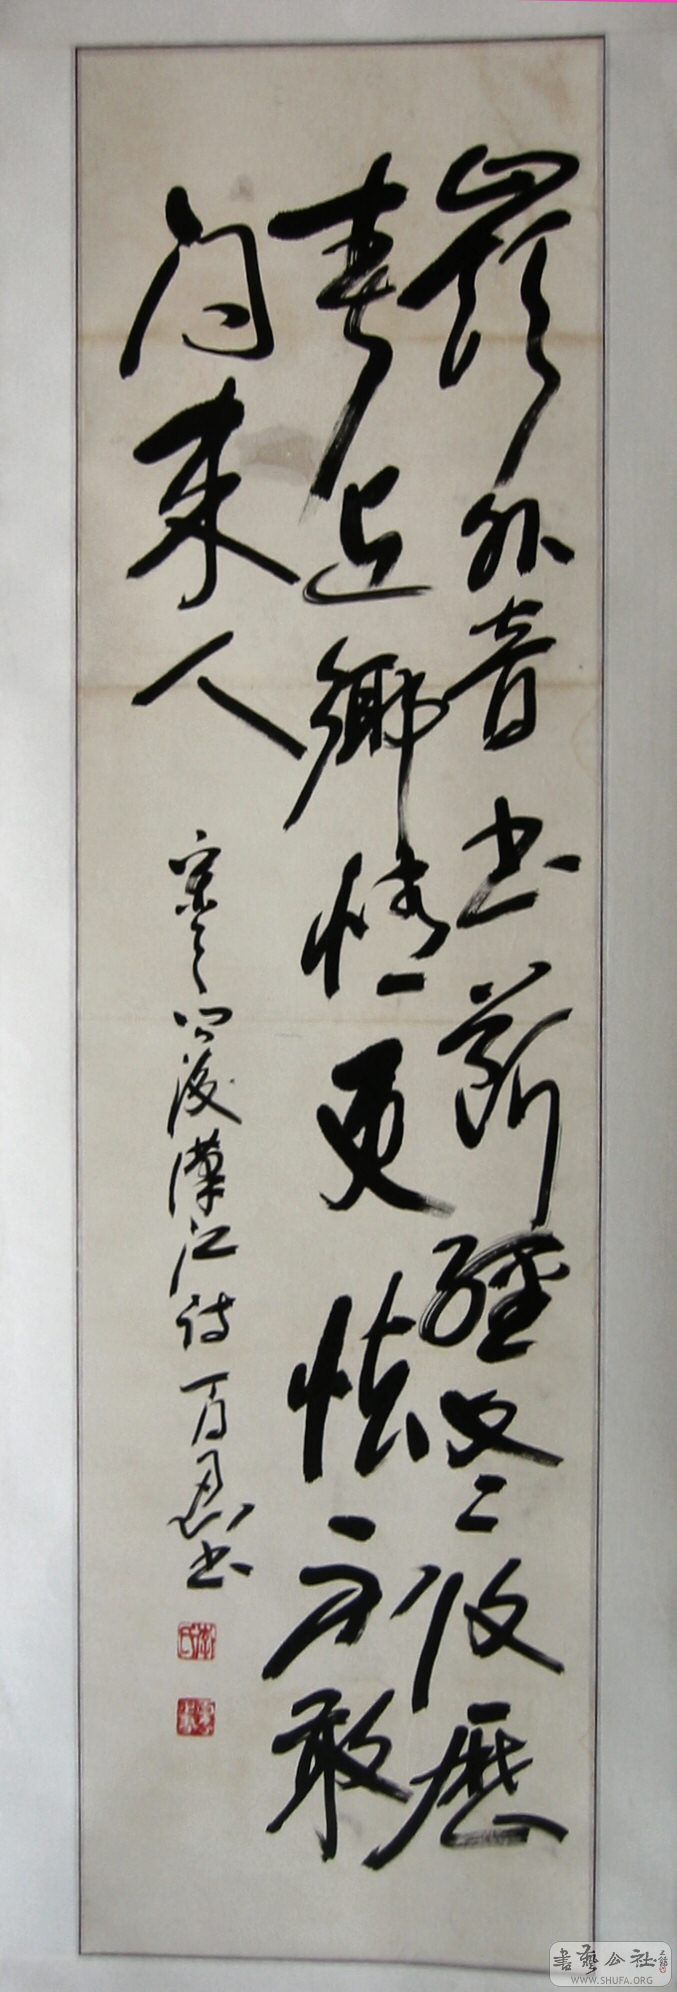 嶺外音書斷經冬復歷
春近鄉情更怯不敢
問來人
宋之問渡漢江詩
書藝公社
WWW.SHUFA.ORG